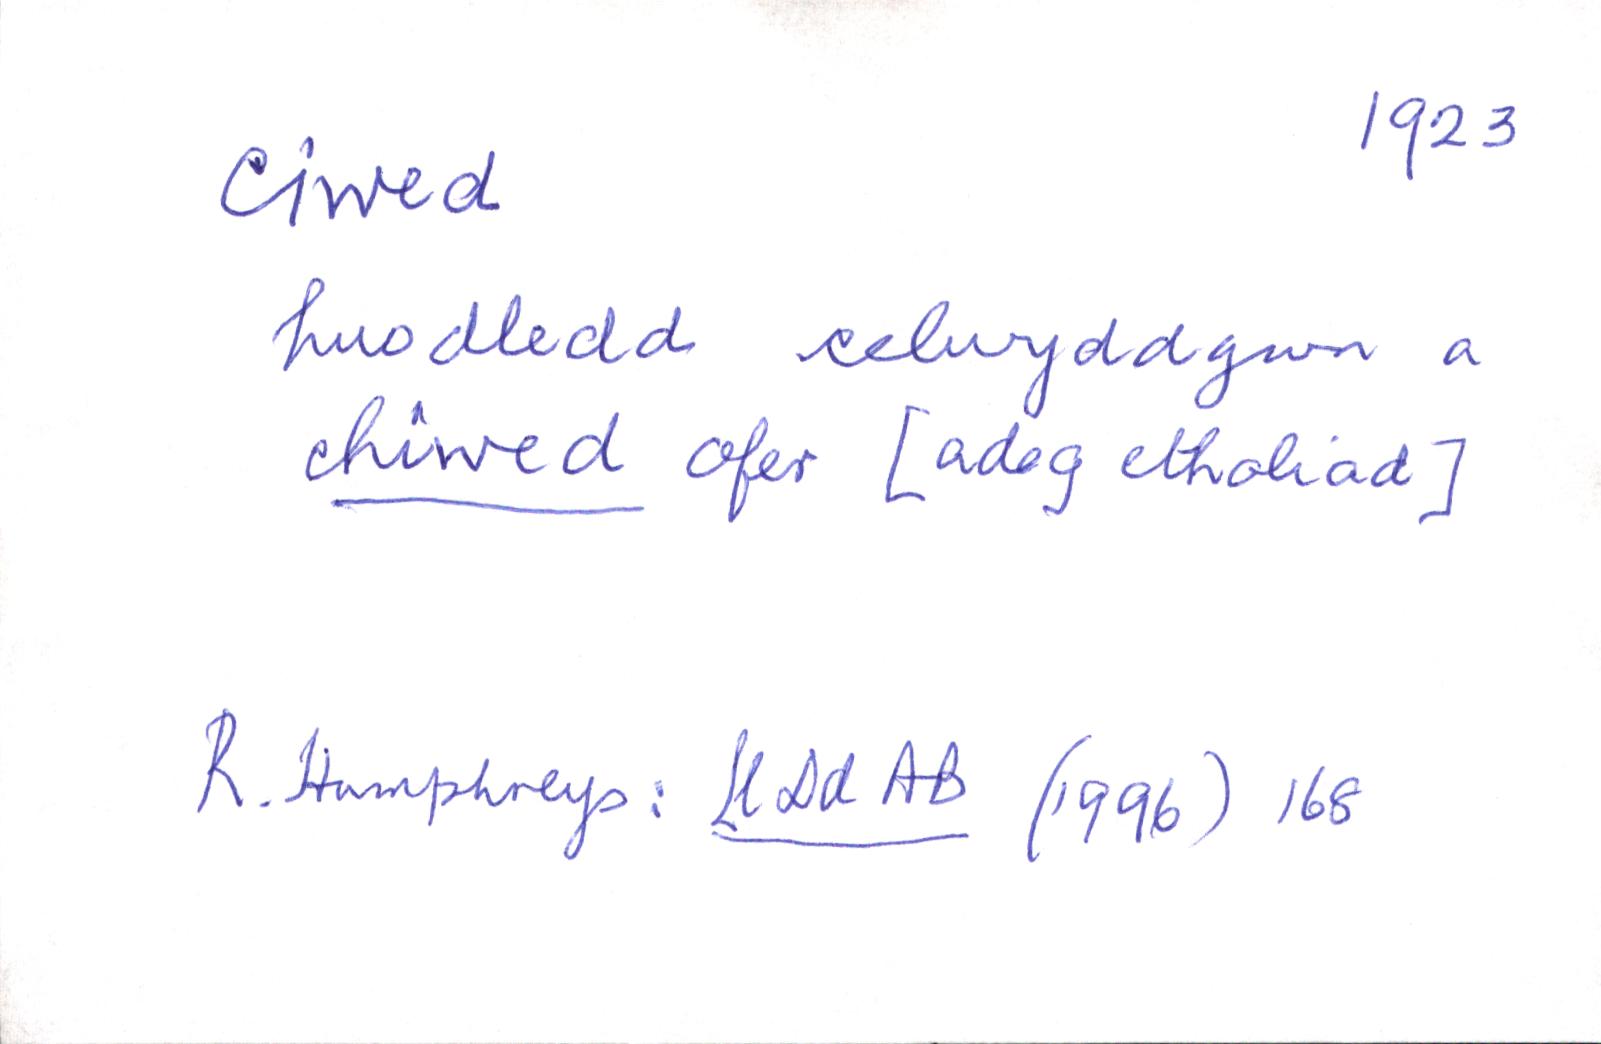 1923
Ciwed
huodledd celwyddgwn a
chiwed ofer [adeg etholiad]
R. Humphreys: Ll Dd AB (1996) 168